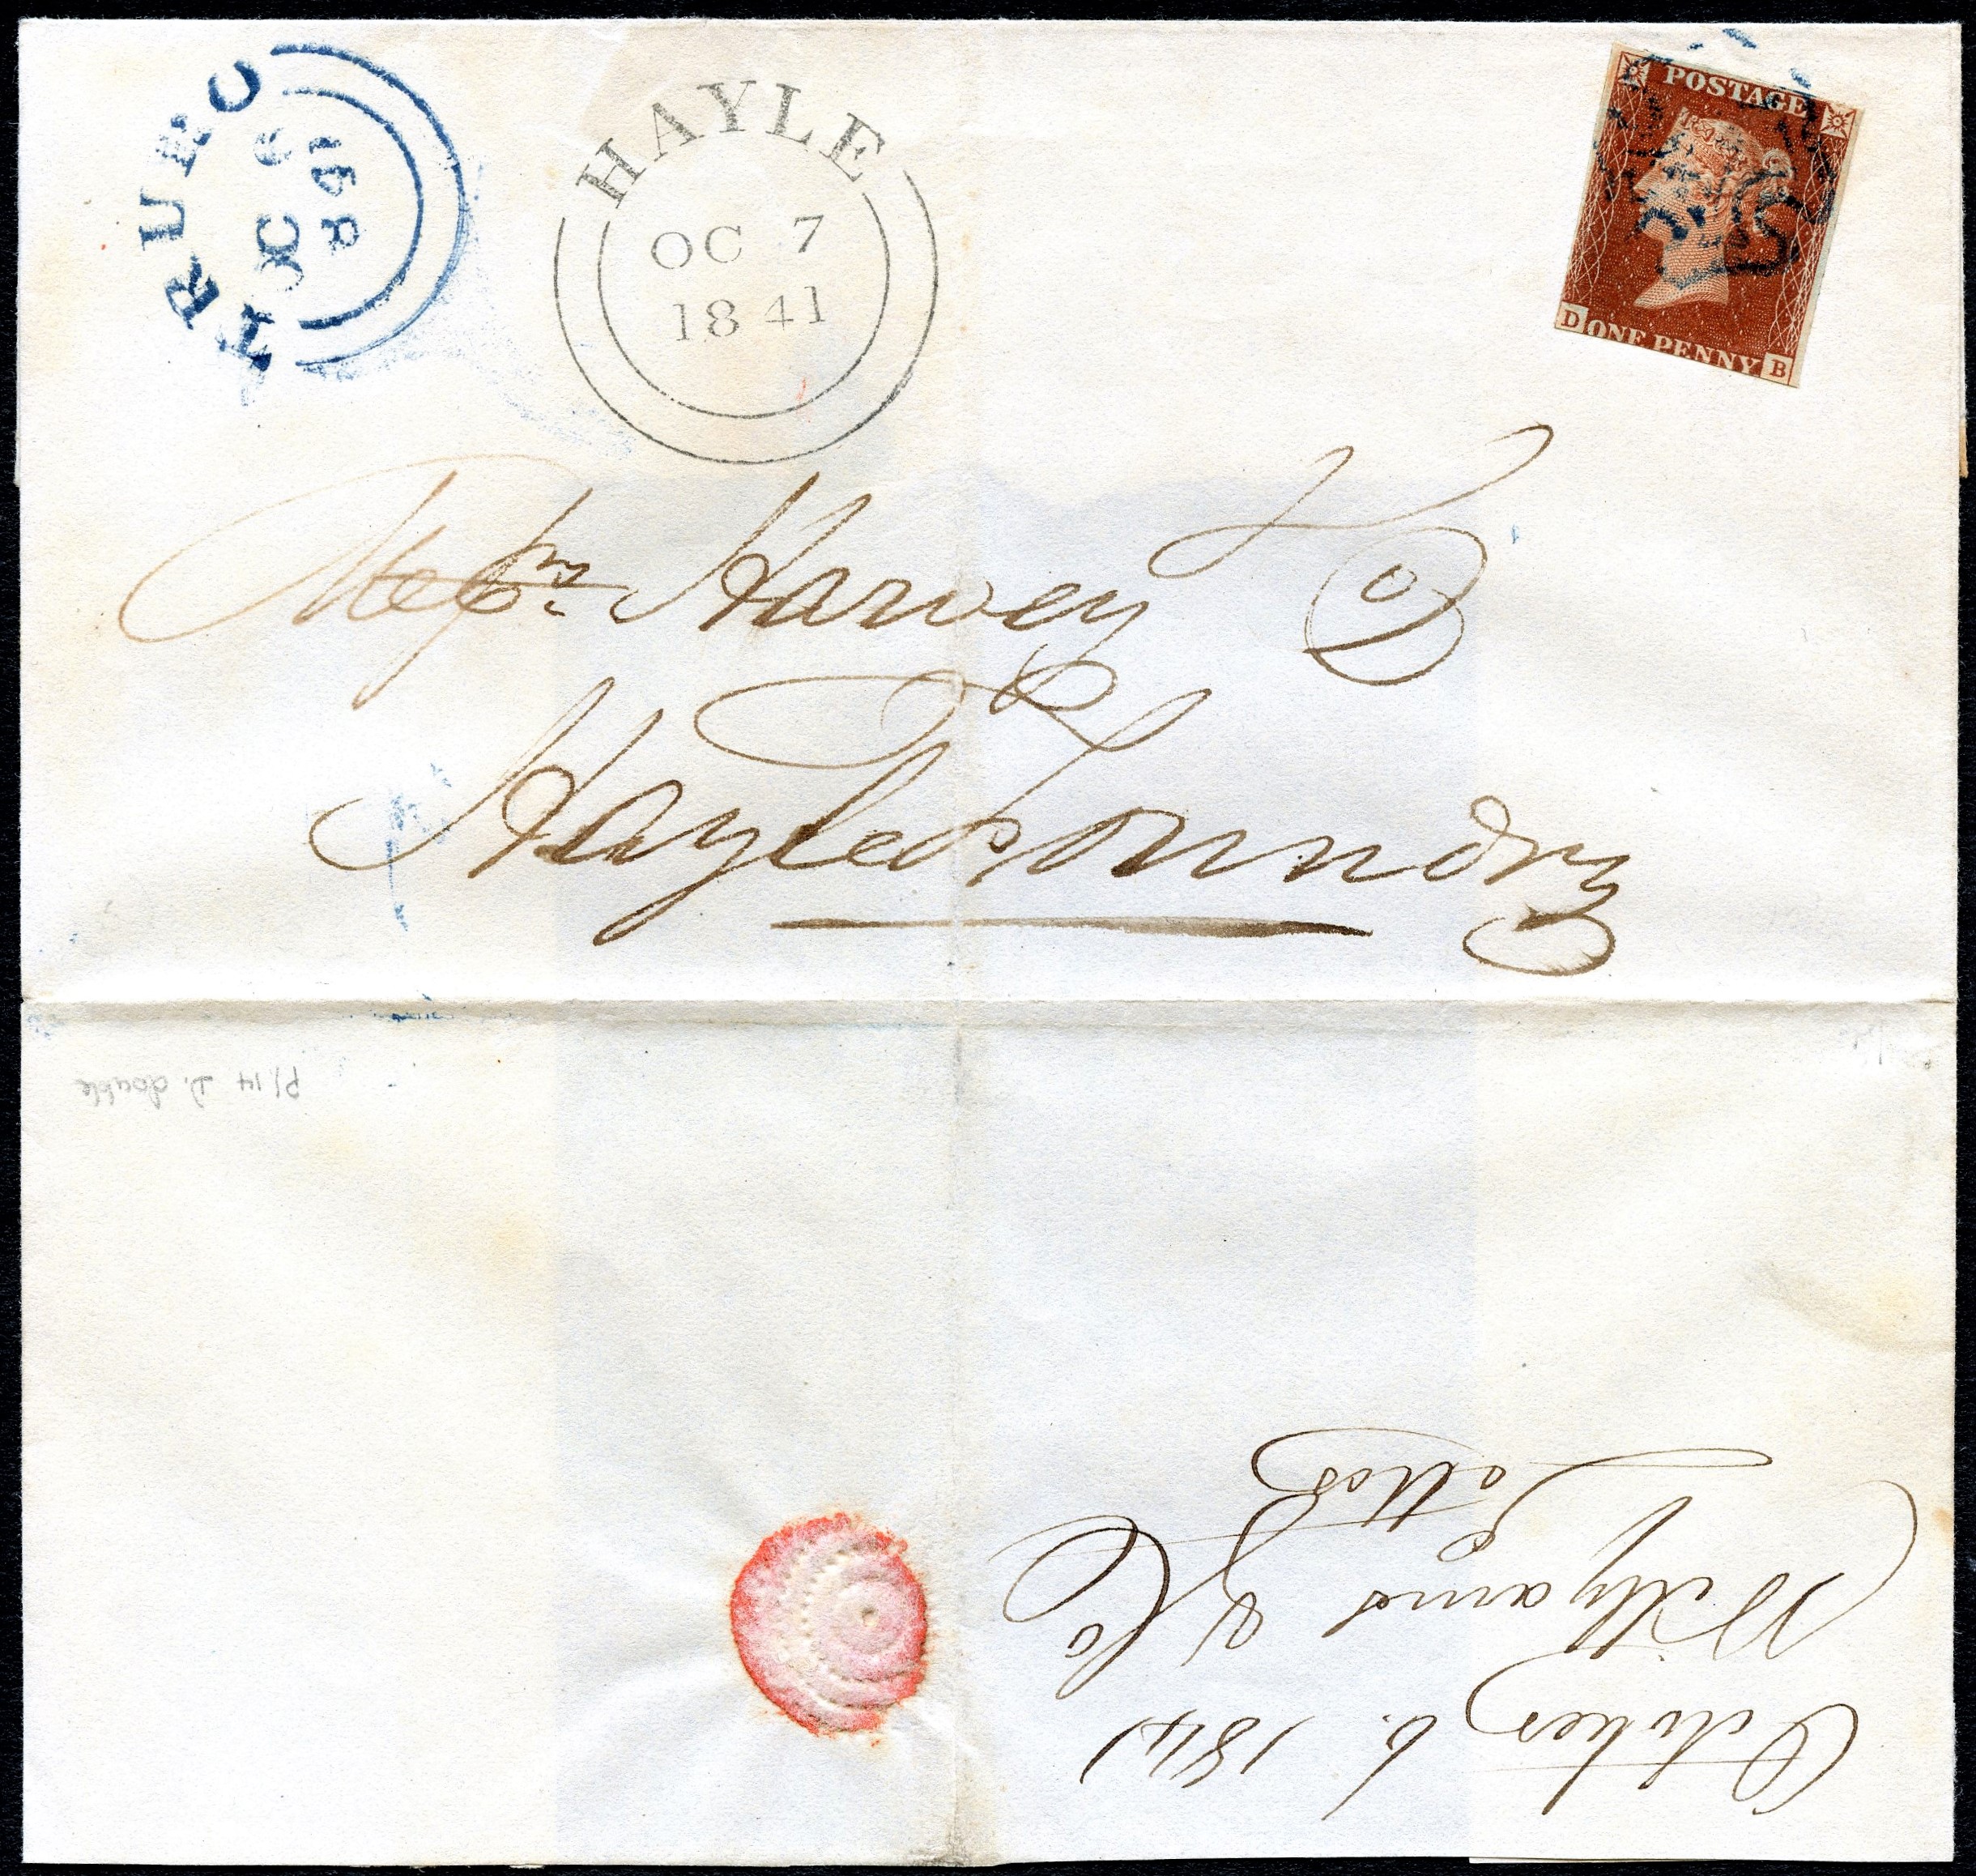 TRURO
OC 6
1841
HAYLE
OC 7
1841
POSTAGE
D ONE PENNY B
Messrs Harvey & Co
Hayle Foundry
Pl 14 D. double
October 6. 1841
Willyams & Co